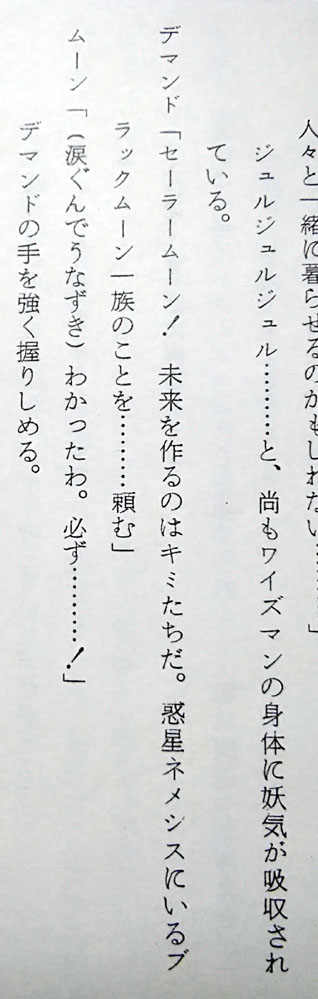 人々と一緒に暮らせるのかもしれない………」
ジュルジュルジュル…………と、尚もワイズマンの身体に妖気が吸収され
ている。
デマンド「セーラームーン！　未来を作るのはキミたちだ。惑星ネメシスにいるブ
ラックムーン一族のことを………頼む」
ムーン「（涙ぐんでうなずき）わかったわ。必ず…………！」
デマンドの手を強く握りしめる。